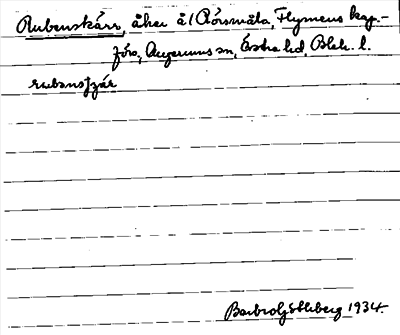 Rubenskärr, åker å 1 Rörsmåla, Flymens kap.-
förs., Augerums sn, Östra hd, Blek. l.
Barbro Ljöbberg 1934.